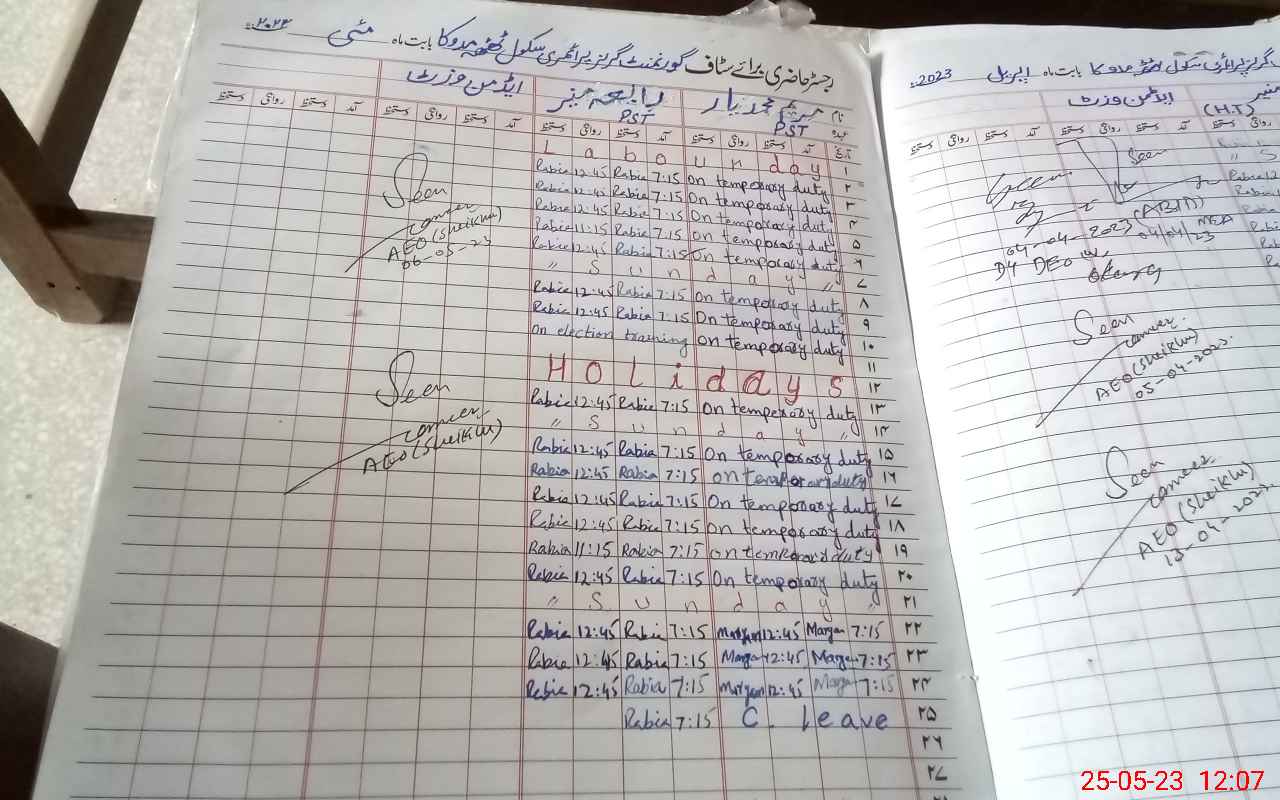 رجسٹر حاضری برائے سٹاف گورنمنٹ گرلز پرائمری سکول ٹھٹھہ مدوکا بابت ماہ مئی ۲۰۲۳ء
نام مریم محمد یار رابعہ منیر ایڈمن وزٹ
عہدہ PST PST
تاریخ آمد دستخط روانگی دستخط آمد دستخط روانگی دستخط آمد دستخط روانگی دستخط آمد دستخط روانگی دستخط
L a b o u r day ۱
Rabia 12:45 Rabia 7:15 On temporary duty ۲
Rabia 12:45 Rabia 7:15 On temporary duty ۳
Rabia 12:45 Rabia 7:15 On temporary duty ۴
Rabia 11:15 Rabia 7:15 On temporary duty ۵
Rabia 12:45 Rabia 7:15 On temporary duty ۶
" S u n d a y " ۷
Rabia 12:45 Rabia 7:15 On temporary duty ۸
Rabia 12:45 Rabia 7:15 On temporary duty ۹
On election training On temporary duty ۱۰
۱۱
H O L i d a y s ۱۲
Rabia 12:45 Rabia 7:15 On temporary duty ۱۳
" S u n d a y " ۱۴
Rabia 12:45 Rabia 7:15 On temporary duty ۱۵
Rabia 12:45 Rabia 7:15 on temporary duty ۱۶
Rabia 12:45 Rabia 7:15 On temporary duty ۱۷
Rabia 12:45 Rabia 7:15 On temporary duty ۱۸
Rabia 11:15 Rabia 7:15 on temporary duty ۱۹
Rabia 12:45 Rabia 7:15 On temporary duty ۲۰
" S u n d a y " ۲۱
Rabia 12:45 Rabia 7:15 Maryam 12:45 Maryam 7:15 ۲۲
Rabia 12:45 Rabia 7:15 Maryam 12:45 Maryam 7:15 ۲۳
Rabia 12:45 Rabia 7:15 Maryam 12:45 Maryam 7:15 ۲۴
Rabia 7:15 C. leave ۲۵
۲۶
۲۷
Seen
AEO (Sheikhu)
06-05-23
Seen
AEO (Sheikhu)
گرلز پرائمری سکول ٹھٹھہ مدوکا بابت ماہ اپریل 2023ء
منیر ایڈمن وزٹ
(H.T)
روانگی دستخط آمد دستخط روانگی دستخط آمد دستخط روانگی دستخط
Seen
Seen
04-04-2023
04/04/23 MEA
Dy DEO W
Okara
Seen
AEO (Sheikhu)
05-04-2023.
Seen
AEO (Sheikhu)
13-04-2023.
25-05-23 12:07